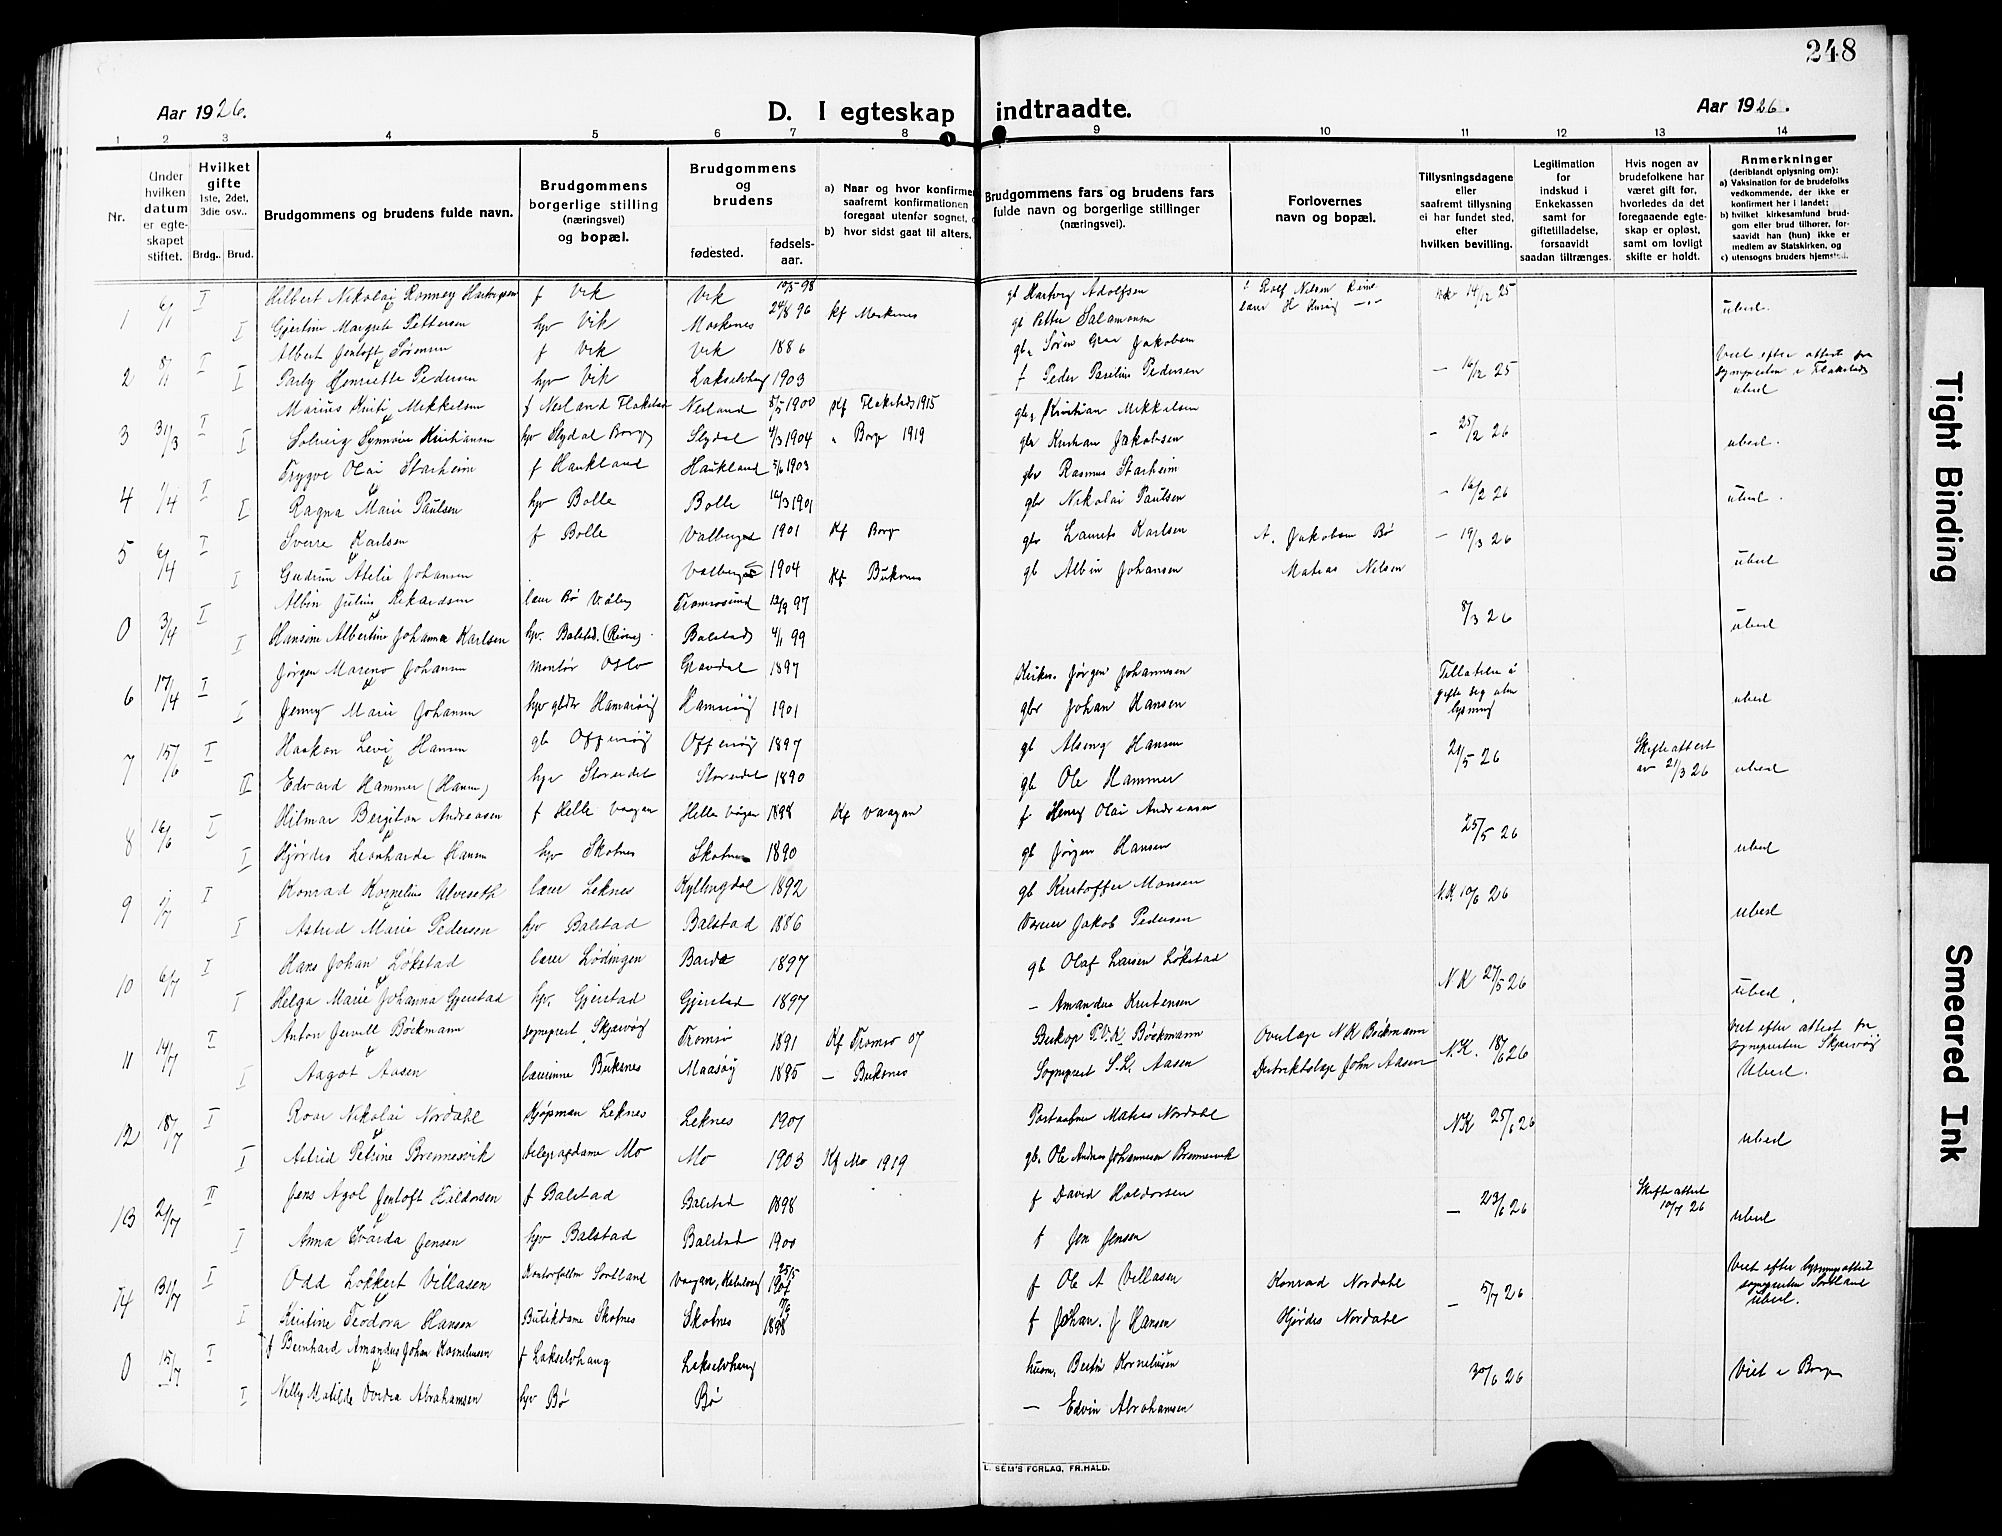 248
Aar 1926.
D. I egteskap indtraadte.
Aar 1926.
1 2 3 4 5 6 7 8 9 10 11 12 13 14
Nr.
Under hvilken datum er egteskapet stiftet.
Hvilket gifte 1ste, 2det, 3die osv..
Brdg.. Brud.
Brudgommens og brudens fulde navn.
Brudgommens borgerlige stilling (næringsvei) og bopæl.
Brudgommens og brudens
fødested.
fødsels-aar.
a) Naar og hvor konfirmer saafremt konfirmationen foregaat utenfor sognet, o
b) hvor sidst gaat til alters.
Brudgommens fars og brudens fars fulde navn og borgerlige stillinger (næringsvei).
Forlovernes navn og bopæl.
Tillysningsdagene eller saafremt tillysning ei har fundet sted, efter hvilken bevilling.
Legitimation for indskud i Enkekassen samt for giftetilladelse, forsaavidt saadan tiltrænges.
Hvis nogen av brudefolkene har været gift før, hvorledes da det foregaaende egteskap er opløst, samt om lovligt skifte er holdt.
Anmerkninger (deriblandt oplysning om):
a) Vaksination for de brudefolks vedkommende, der ikke er konfirmert her i landet;
b) hvilket kirkesamfund brudgom eller brud tilhører, forsaavidt han (hun) ikke er medlem av Statskirken, og
c) utensogns bruders hjemsted.
1 6/1 I Hilbert Nikolai Ronney Hartvigsen f Vik Vik 98 gb Hartvig Adolfsen 14/12 25
I Gjertine Margrete Pettersen hjv Vik Moskenes 24/8 96 Kf Moskenes gb Petter Salamonsen ubesl.
2 8/1 I Albert Jentoft Sørensen f Vik Vik 1886 Søren Jakobsen Viet efter attest fra
I Parly Henriette Pedersen hjv Vik Lakselvhaug 1903 f Peder Parelius Pedersen — 16/12 25 sognepresten i Flakstad ubesl
3 31/3 I Marius Mikkelsen f Nesland Flakstad Nesland 8/5 1900 Kf Flakstad 1915 Kristian Mikkelsen
I Solveig Synnøve Kristiansen hjv Slydal Borge Slydal 4/3 1904 " Borge 1919 Kristian Jakobsen — 25/2 26 ubesl.
4 1/4 I Trygve Olai Starheim f Haukland Haukland 5/6 1903 gbr Rasmus Starheim
I Ragna Marie Paulsen hjv Bolle Bolle 1901 gbr Nikolai Paulsen — 16/2 26 ubesl.
5 6/4 I Sverre Karlsen f Bolle Valberget 1901 Kf Borge gbr Laurits Karlsen A. Jakobsen Bø — 19/3 26
I Gudrun Atelie Johansen 1904 Kf Buksnes gb Albin Johansen Matias Nilsen ubesl
0 3/4 I Albin Julius Rikardsen Bø Tromøsund 12/9 97 8/3 26
I Hansine Albertine Johanna Karlsen hjv. Balstad (Reine) Balstad 4/1 99 ubesl
6 17/4 I Jørgen Mareno Johansen montør Oslo Gravdal 1897 Jørgen Johannesen Tillatelse å gifte sig uten lysning
I Jenny Marie Johansen hjv Hamarøy Hamarøy 1901 gbr Johan Hansen ubesl
7 15/6 I Haakon Levi Hansen gb Offersøy Offersøy 1897 gb Hansen 21/5 26 Skifteattest av 21/3 26
II Edvard Hammer (Hansen) hjv Storeidet Storeidet 1890 gb Ole Hammer ubesl
8 16/6 I Hilmar Bergiton Andreasen f Helle Vaagan Helle Vågan 1898 Kf Vaagan f Henry Olai Andreasen 25/5 26
I Hjørdis Leonharda Hansen hjv Skotnes Skotnes 1890 gb Jørgen Hansen ubesl
9 1/7 I Konrad Kornelius Alveseth lærer Leknes Kyllingdal 1892 gb Kristoffer Monsen N.K. 10/6 26
I Astrid Marie Pedersen hjv Balstad Balstad 1886 Væreier Jakob Pedersen ubesl
10 6/7 I Hans Johan Løkstad lærer Lødingen Bardø 1897 gb Olaf Larsen Løkstad N K 27/5 26
I Helga Marie Johanna Gjerstad hjv. Gjerstad Gjerstad 1897 — Amandus Kristensen ubesl.
11 14/7 I Anton Jervell Böckmann sogneprest Skjærvøy Tromsø 1891 Kf Tromsø 07 Biskop P.V.K. Böckmann Overlæge N K Böckmann N.K. 18/6 26 Viet efter attest fra sognepresten Skjervøy
I Aagot Aasen lærerinne Buksnes Maasøy 1895 — Buksnes Sogneprest S.L. Aasen Distriktslæge John Aasen Ubesl.
12 18/7 I Roar Nikolai Nordahl Kjøpman Leknes Leknes 1901 Postaabner Matias Nordahl N.K 25/6 26
I Astrid Petrine Brennesvik telegrafdame Mo Mo 1903 Kf Mo 1919 gb. Ole Andreas Johannesen Brennesvik ubesl
13 21/7 II Jens Agol Jentoft Hildorsen f Balstad Balstad 1898 f David Haldorsen — 23/6 26 Skifteattest 10/7 26
I Anna Ivarda Jensen hjv Balstad Balstad 1900 f Jen Jensen ubesl
14 31/7 I Odd Lokkert Villasen Sortland Vaagan, 25/5 f Ole A Villasen Konrad Nordahl — 5/7 26 Viet efter lysningsattest sognepresten Sortland ubesl.
I Kristine Teodora Hansen Butikdame Skotnes Skotnes 1898 f Johan. J Hansen Hjørdis Nordahl
0 15/7 I f Bernhard Amandus Johan Korneliussen f Lakselvhaug Lakselvhaug husm. Bertin Korneliusen 30/6 26 Viet i Borge
I Nelly Matilde Ovidia Abrahamsen hjv Bø Bø — Edvin Abrahamsen
L. SEM'S FORLAG, FR.HALD.
Tight Binding
Smeared Ink